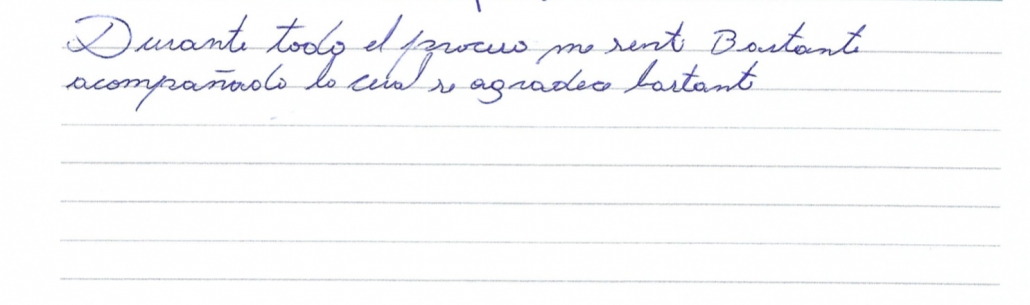 Durante todo el proceso me sentí Bastante
acompañado lo cual se agradece bastante